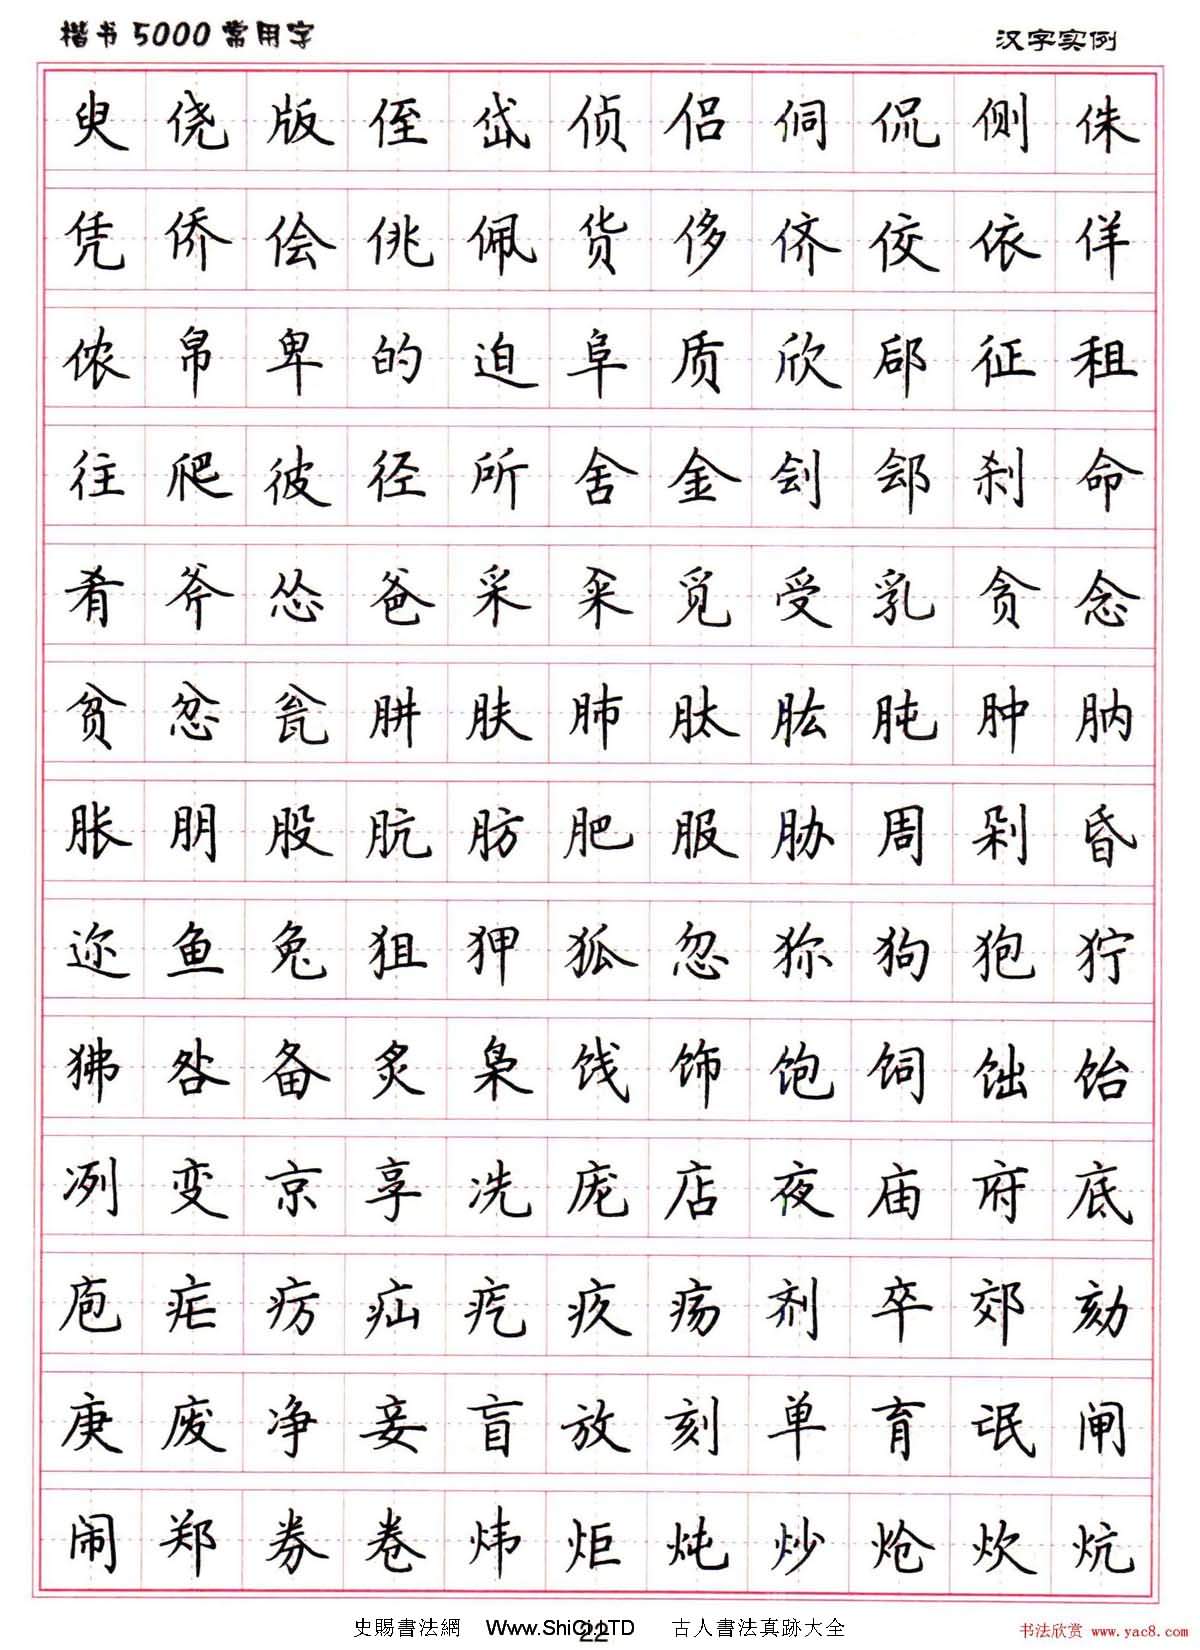 楷书5000常用字 汉字实例
臾侥版侄岱侦侣侗侃侧侏
凭侨侩佻佩货侈侪佼依佯
侬帛卑的迫阜质欣郈征租
往爬彼径所舍金刽郐刹命
肴斧怂爸采籴觅受乳贪念
贫忿瓮肼肤肺肽肱肫肿肭
胀朋股肮肪肥服胁周剁昏
迩鱼兔狙狎狐忽狝狗狍狞
狒咎备炙枭饯饰饱饲饳饴
冽变京享冼庞店夜庙府底
庖疟疠疝疙疚疡剂卒郊劾
庚废净妾盲放刻单育氓闸
闹郑券卷炜炬炖炒炝炊炕
22
史賜書法網 Www.ShiCi.LTD 古人書法真跡大全
书法欣赏 www.yac8.com